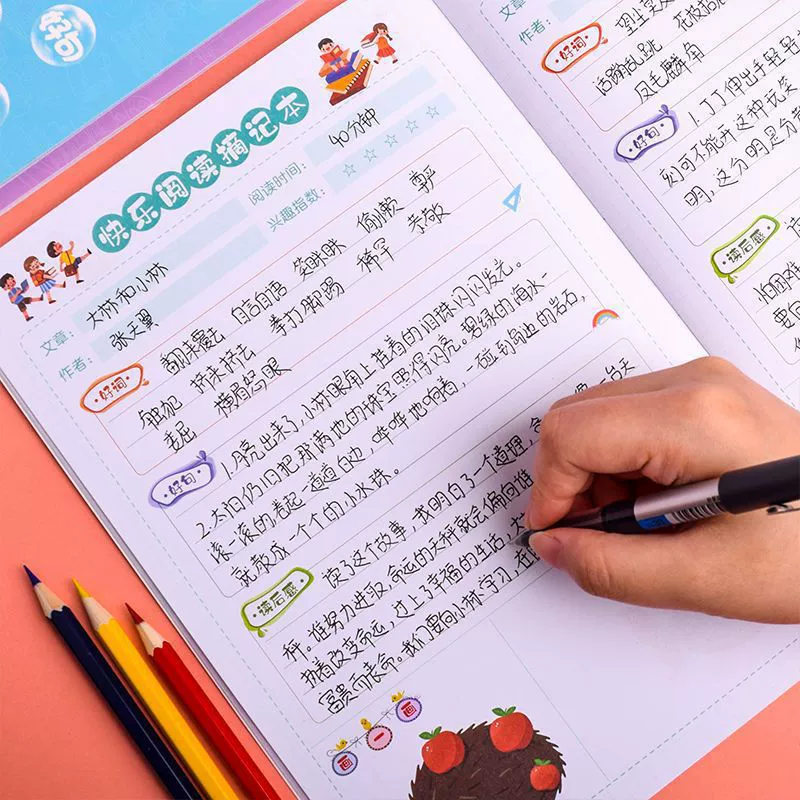 好句
快乐阅读摘记本
文章：大林和小林
作者：张天翼
阅读时间：40分钟
兴趣指数：☆☆☆☆☆
好词
翻来覆去 自言自语 笑眯眯 偷懒 尊严
挤来挤去 拳打脚踢 恭敬
委屈 横眉怒眼
好句
1.月亮出来了，小林眼角上挂着的泪珠闪闪发光。
2.太阳仍旧把那满地的珠宝照得闪亮。碧绿的海水一
滚一滚的卷起一道道的边，哗哗地响着，一碰到岛边的岩石，
就散成一个个的小水珠。
读后感
读了这个故事，我明白了一个道理，
秤。谁努力进取，命运的天秤就会偏向谁
改变命运，过上了幸福的生活，
富贵而丧命。我们要向小林学习，
画一画
文章
作者：
好词
活蹦乱跳
凤毛麟角
好句
1.丁丁伸出手轻轻
刻可不能开这种玩笑
明，这分明是
读后感
要向